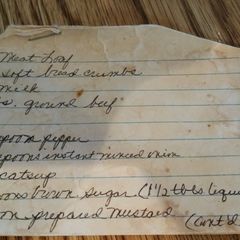 Meat Loaf
soft bread crumbs
milk
s. ground beef
spoon pepper
spoons instant minced onion
catsup
oons brown sugar (1 1/2 tbls liquid
on prepared mustard
(cont'd